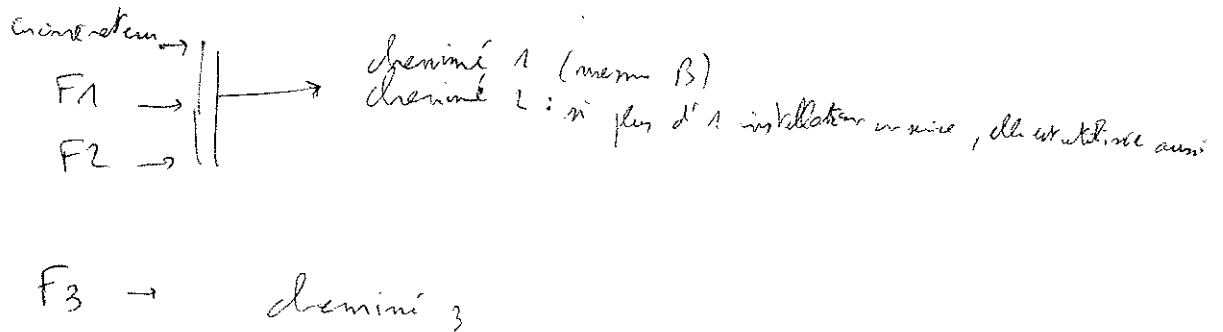 incinérateur →
F1 →
F2 →
cheminé 1 (mesure B)
cheminé 2 : si plus d'1 installation en service, elle est utilisée aussi
F3 → cheminé 3